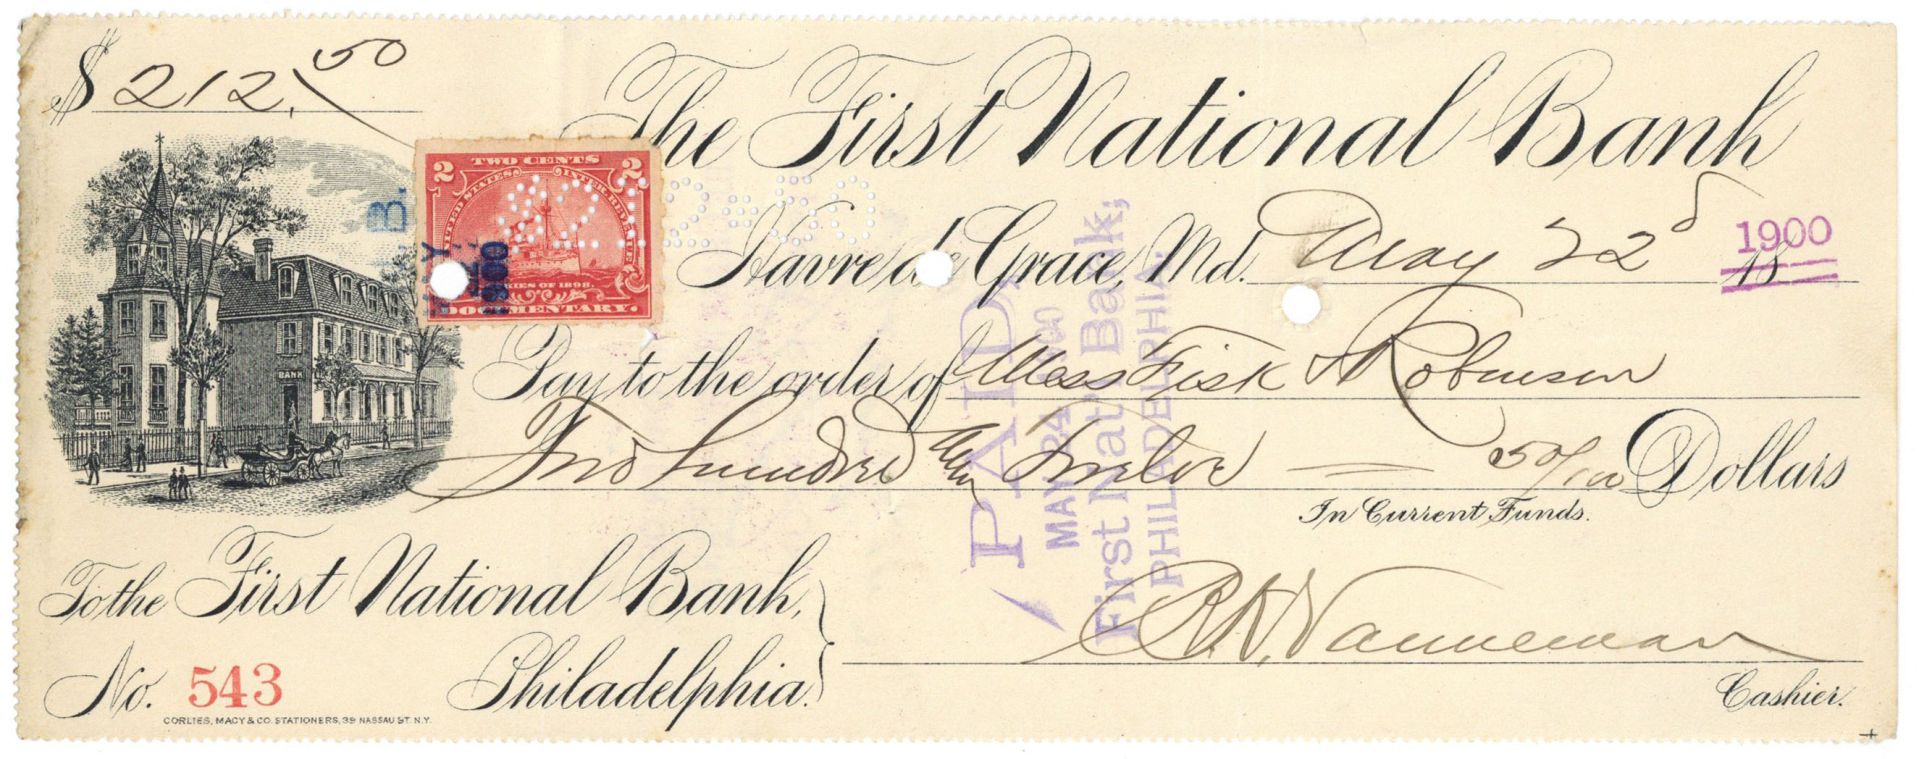 $ 212.50
The First National Bank
Havre de Grace, Md. May 22 18 1900
Pay to the order of Mess Fisk & Robinson
Two hundred and Twelve — 50/100 Dollars
In Current Funds.
To the First National Bank,
Philadelphia.
No. 543
R. K. Vanneman
Cashier.
CORLIES, MACY & CO. STATIONERS, 39 NASSAU ST. N.Y.
BANK
2 TWO CENTS 2
UNITED STATES INTER. REVENUE
SERIES OF 1898.
DOCUMENTARY.
B.
MAY
1900
$212.50
PAID
MAY 24 1900
First Nat'l Bank,
PHILADELPHIA.